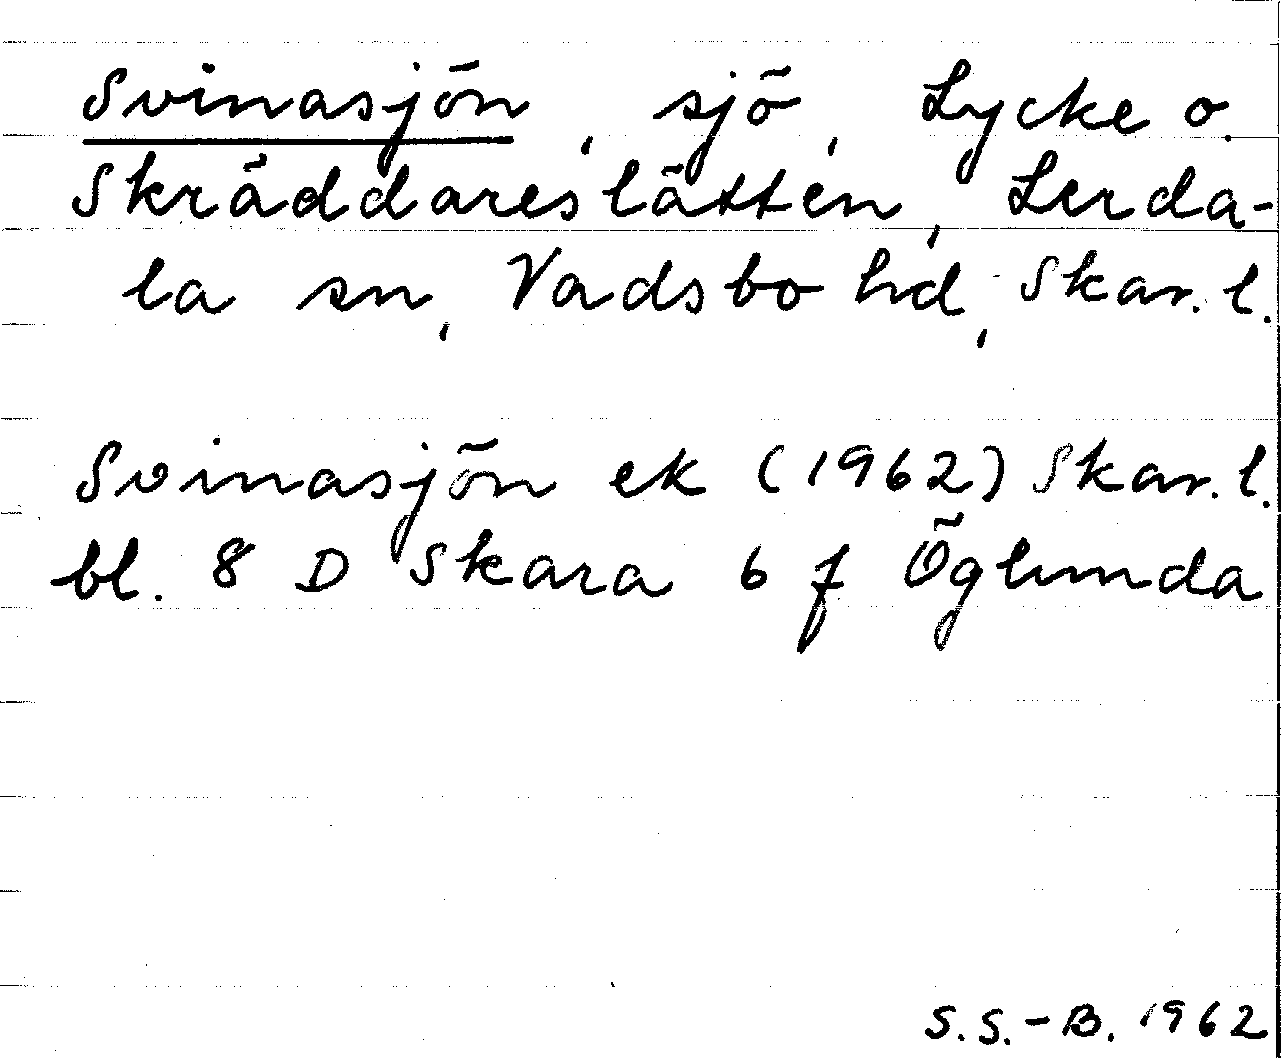 Svinasjön, sjö, Lycke o.
Skräddareslätten, Lerda-
la sn, Vadsbo hd, Skar. l.
Svinasjön ek (1962) Skar. l.
bl. 8 D Skara 6 f Öglunda
S.S.-B. 1962